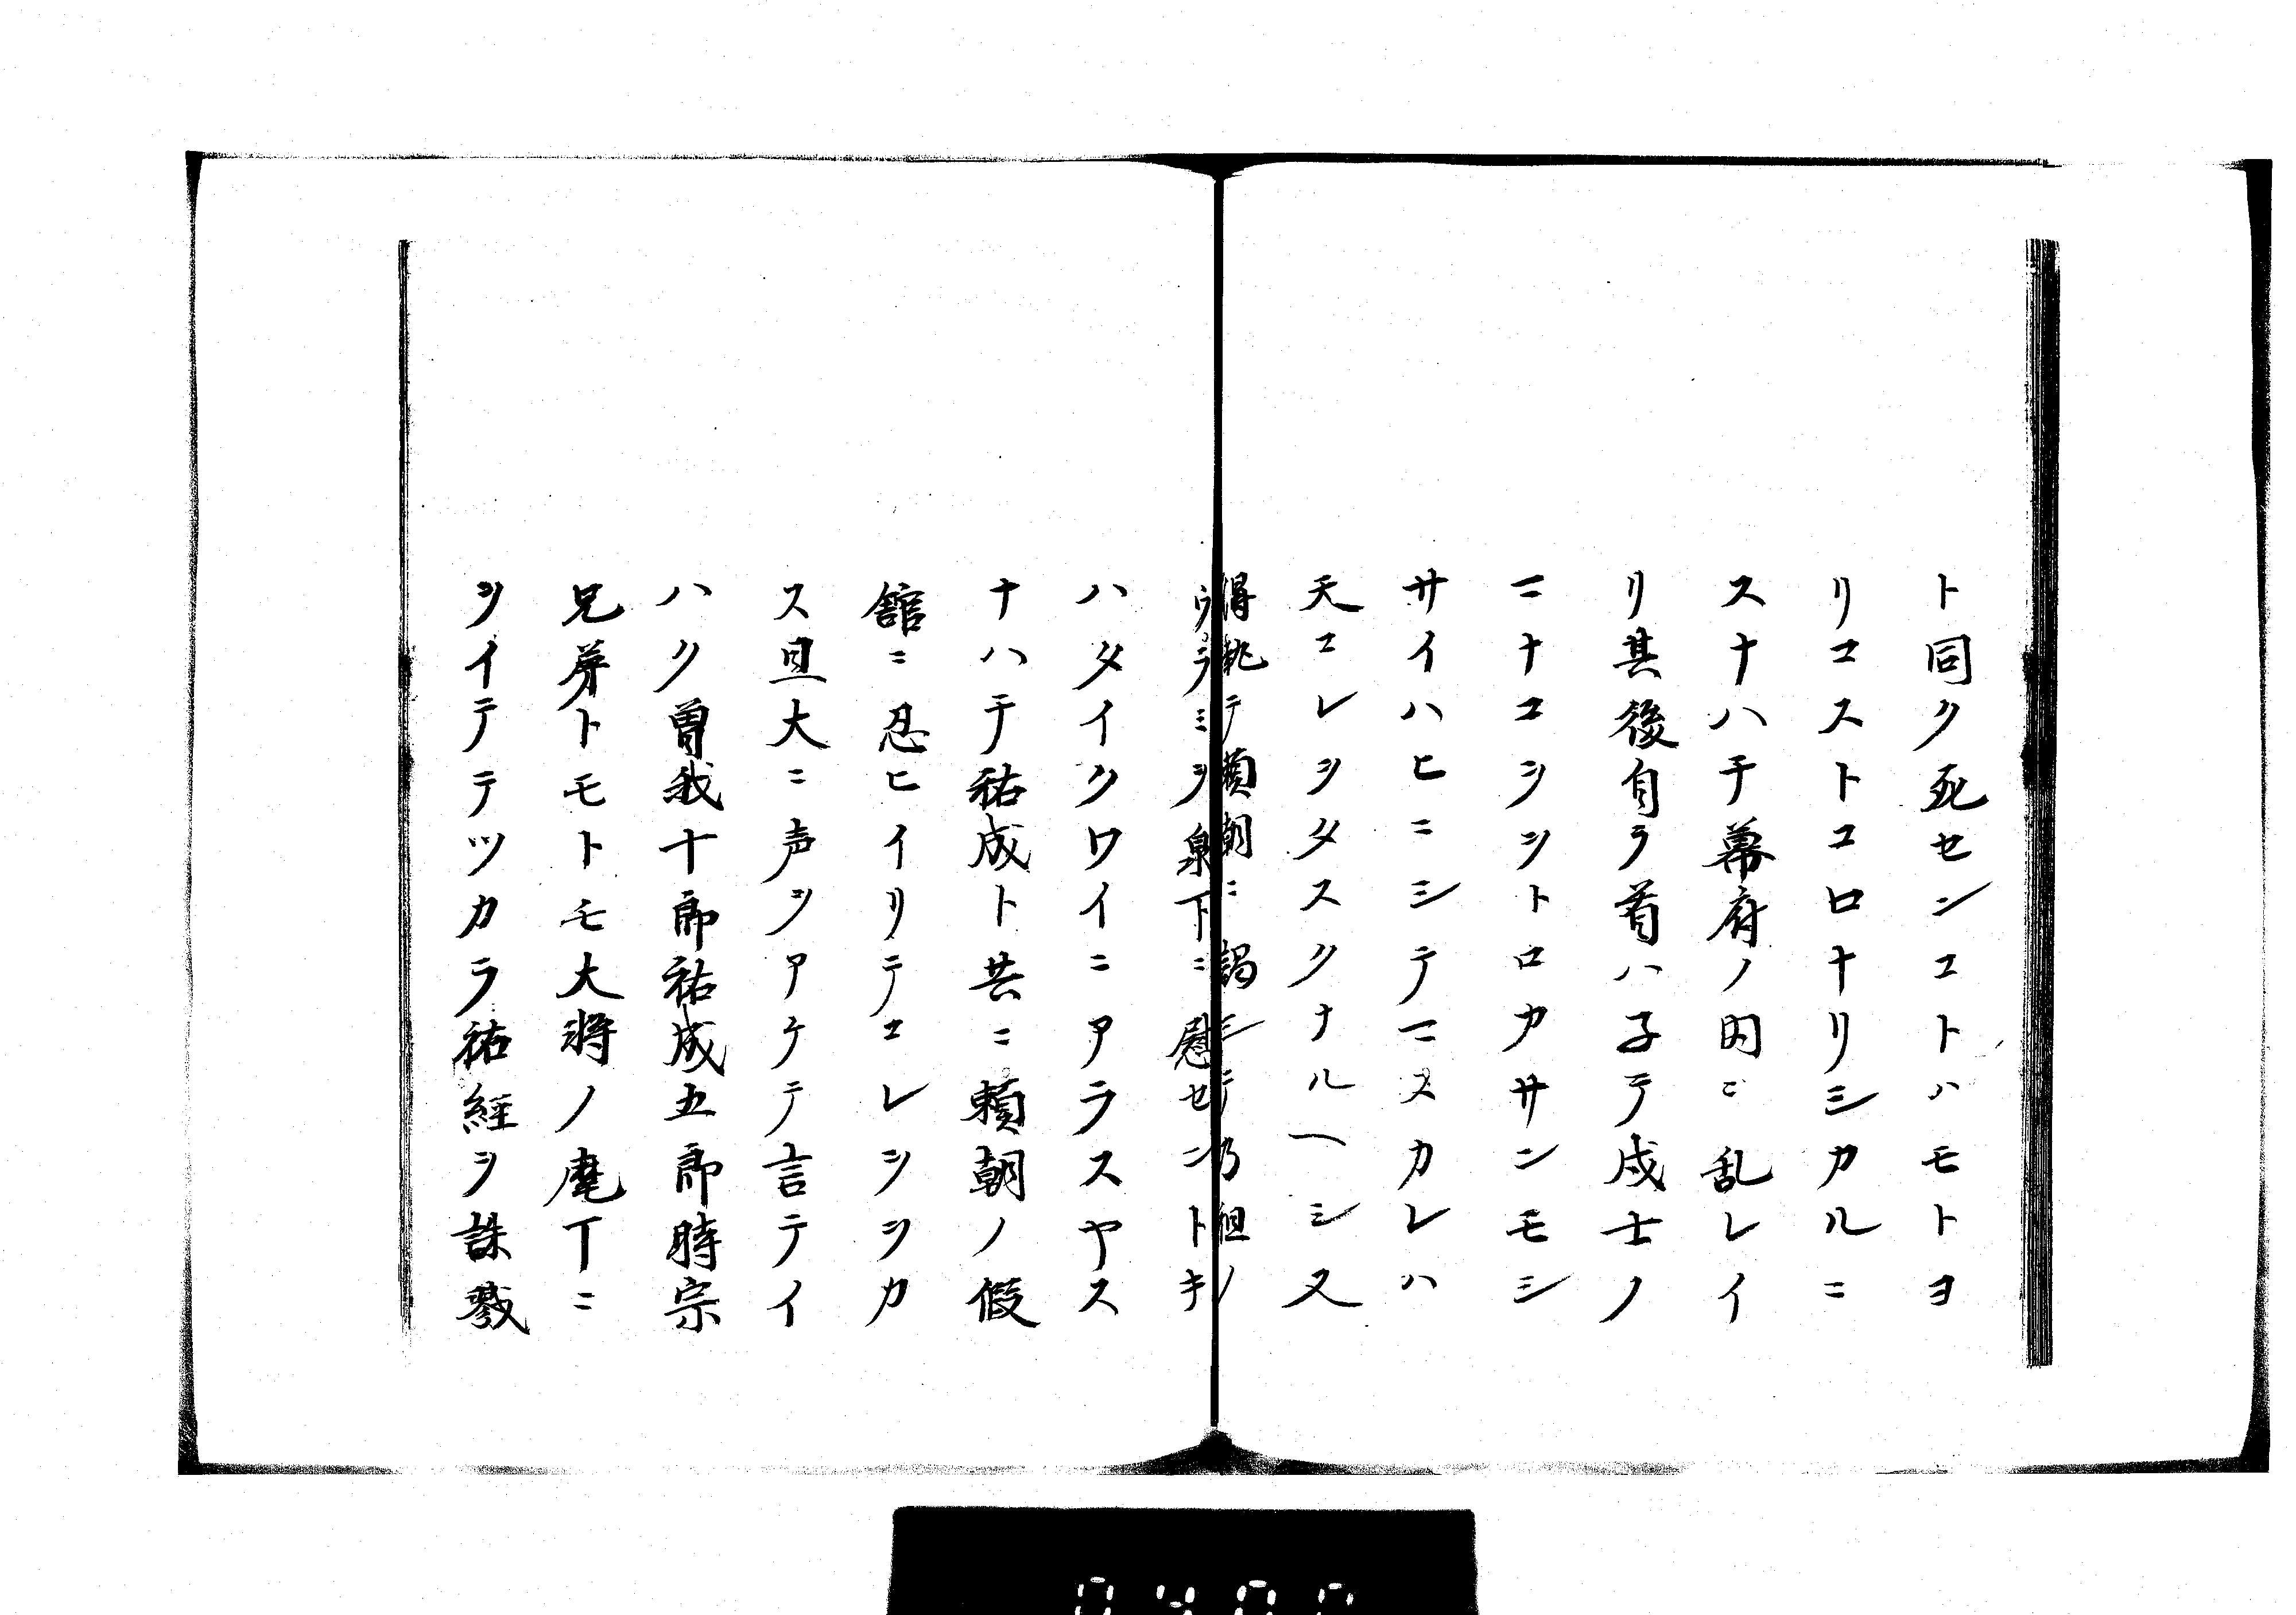 ト同ク死センコトハモトヨ
リコストコロナリシカルニ
スナハチ幕府ノ内ニ乱レイ
リ其後自ラ首ハ子テ戍士ノ
マナコヲシトロカサンモシ
サイハヒニシテマヌカレハ
天コレヲタスクナルヘシ又
得挑テ頼朝ニ謁シテ乃祖ノ
ウラミヲ泉下ニ慰セントキ
ハタイクワイニアラスヤス
ナハチ祐成ト共ニ頼朝ノ假
舘ニ忍ヒイリテコレヲシカ
ス且大ニ声ヲアケテ言テイ
ハク曽我十郎祐成五郎時宗
兄弟トモトモ大将ノ麾下ニ
ヲイテテツカラ祐経ヲ誅戮